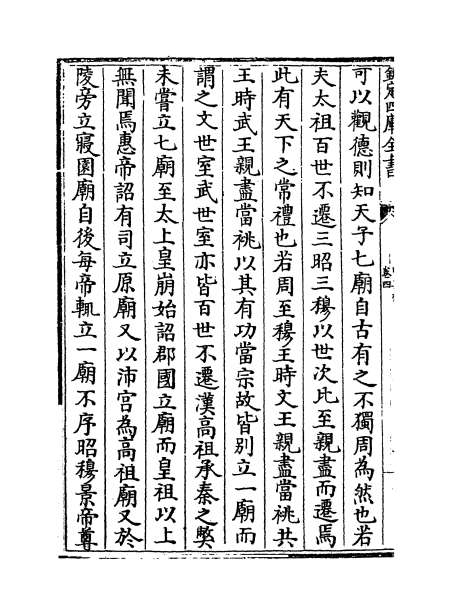 欽定四庫全書
卷四
可以觀德則知天子七廟自古有之不獨周為然也若
夫太祖百世不遷三昭三穆以世次比至親盡而遷焉
此有天下之常禮也若周至穆王時文王親盡當祧共
王時武王親盡當祧以其有功當宗故皆別立一廟而
謂之文世室武世室亦皆百世不遷漢高祖承秦之弊
未嘗立七廟至太上皇崩始詔郡國立廟而皇祖以上
無聞焉惠帝詔有司立原廟又以沛宮為高祖廟又於
陵旁立寢園廟自後每帝輒立一廟不序昭穆景帝尊